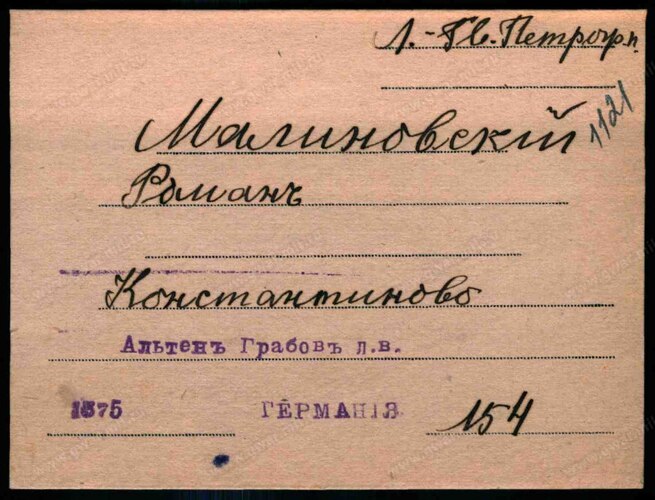 Л.-Гв. Петрогр. п.
1121
Малиновскій
Романъ
Константиново
Альтенъ Грабовъ л.в.
1375 ГЕРМАНІЯ 154